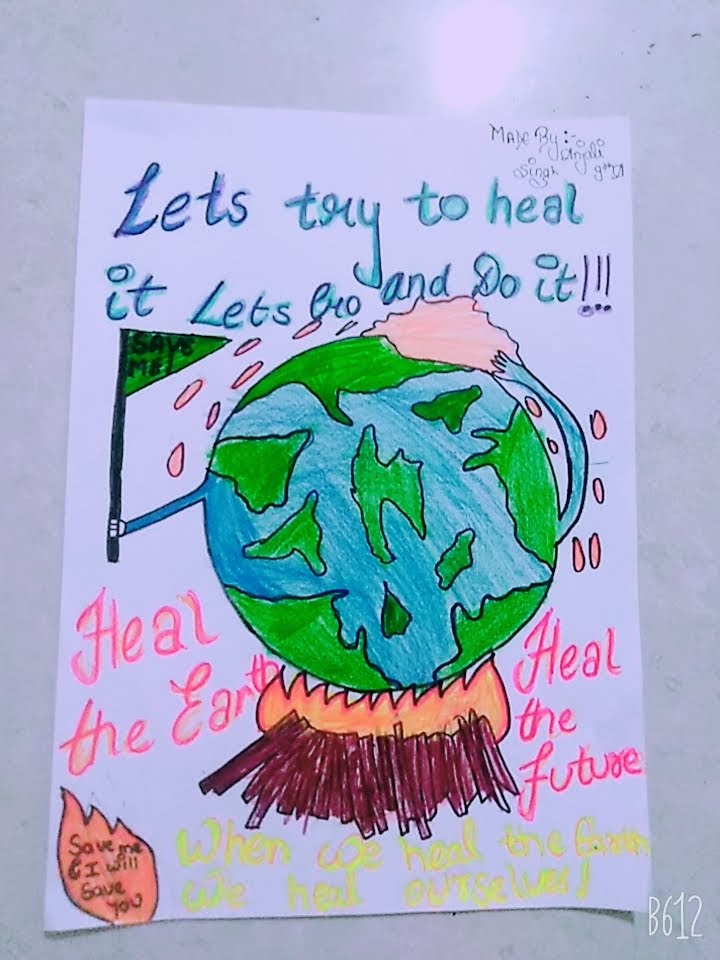 Made By:- Anjali
Singh
Lets try to heal
it Lets Go and Do it!!!
SAVE
ME!
Heal
the Earth
Heal
the
future
Save me
& I will
Save
you
When we heal the Earth
We heal ourselves!
B612